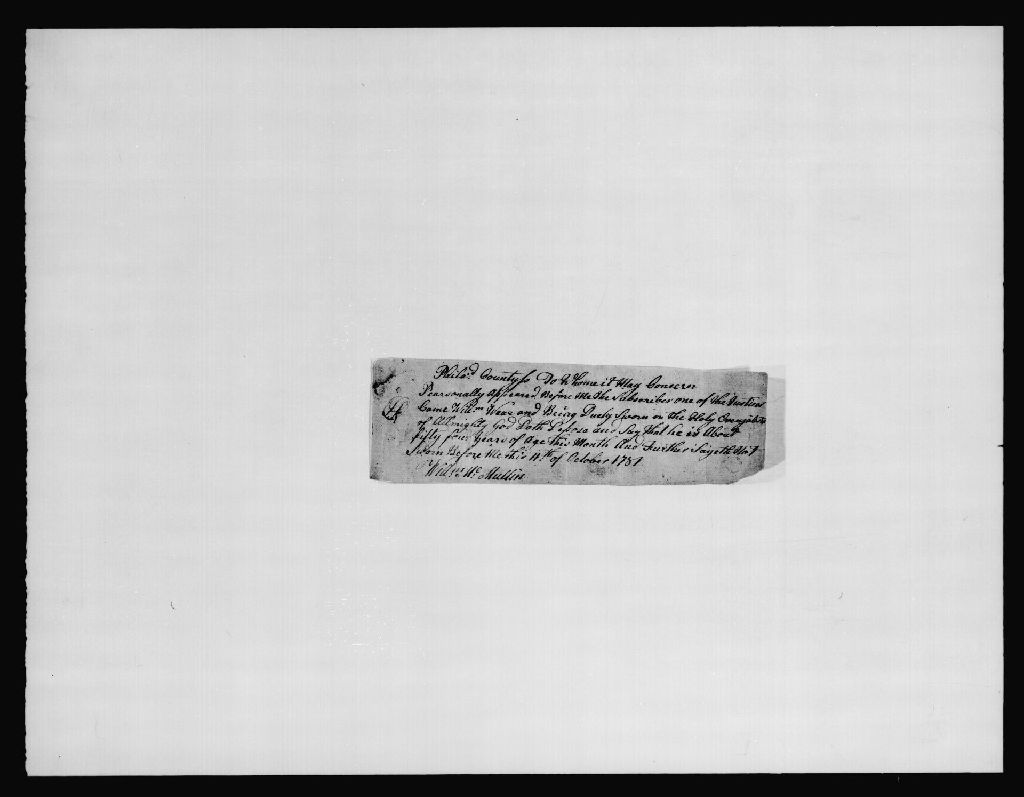 Philad. County ss To Whome it May Concern
Pearsonally Appeared Before Me the Subscriber one of the Justices
Came Willm Wear and Being Duely Sworn on the Holy Evangelists
of Allmighty God Doth and Say that he is About
fifty four Years of Age this Month And Further Sayeth Not
Sworn Before Me this 11th of October 1781
Willm Mc Mullin